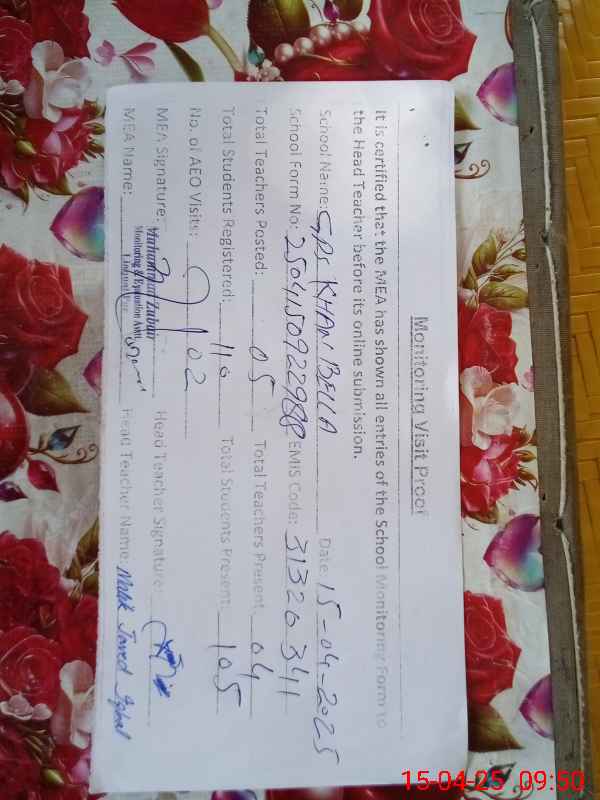 Monitoring Visit Proof
It is certified that the MEA has shown all entries of the School Monitoring Form to
the Head Teacher before its online submission.
School Name: GPS KHAN BELLA Date: 15-04-2025
School Form No: 2504150922988 EMIS Code: 31320341
Total Teachers Posted: 05 Total Teachers Present: 04
Total Students Registered: 110 Total Students Present: 105
No. of AEO Visits: 02
MEA Signature: Head Teacher Signature:
Muhammad Zubair
Monitoring & Evaluation Asstt.
MEA Name: Head Teacher Name: Malik Javed Iqbal
15-04-25 09:50